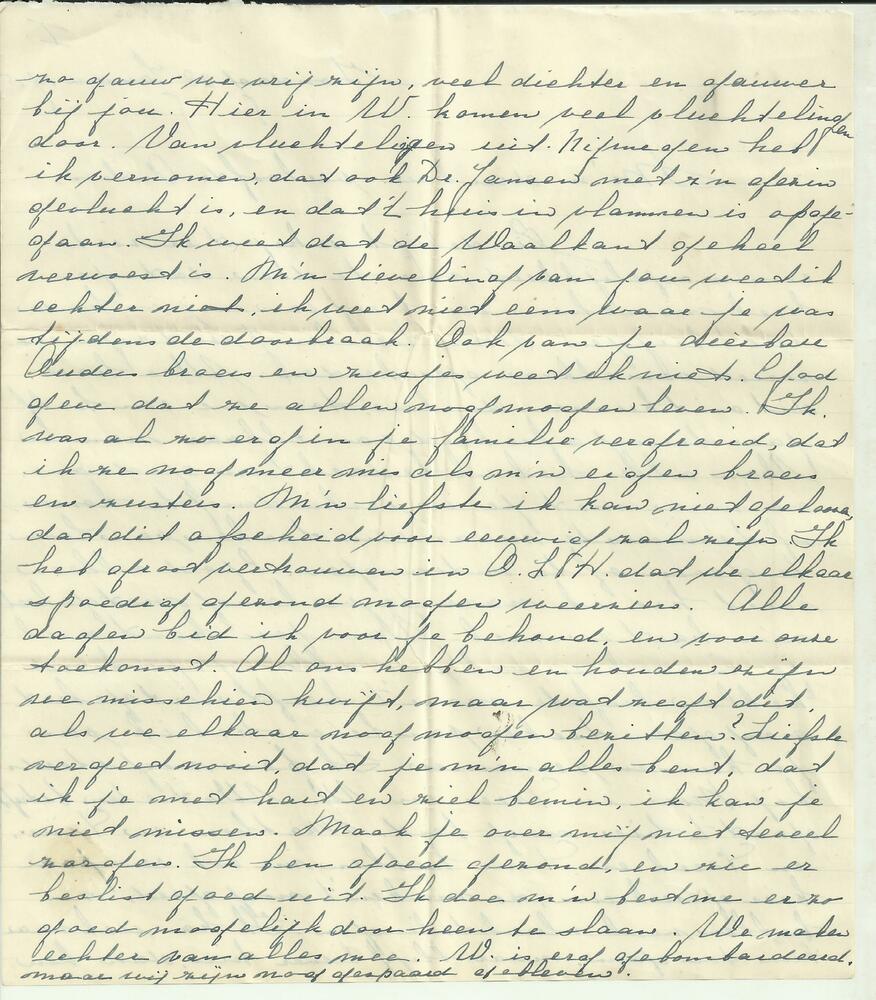 zo gauw we vrij zijn, veel dichter en gauwer
bij jou. Hier in W. komen veel vluchtelingen
door. Van vluchtelingen uit Nijmegen heb
ik vernomen, dat ook Dr. Jansen met z'n gezin
gevlucht is, en dat 't huis in vlammen is opge-
gaan. Ik weet dat de Waalkant geheel
verwoest is. M'n lieveling van jou weet ik
echter niet, ik weet niet eens waar je was
tijdens de doorbraak. Ook van je dierbare
Ouders broers en zusjes weet ik niets. God
geve dat ze allen nog mogen leven. Ik
was al zo erg in je familie vergroeid, dat
ik ze nog meer mis als m'n eigen broers
en zusters. M'n liefste ik kan niet geloven,
dat dit afscheid voor eeuwig zal zijn. Ik
heb groot vertrouwen in O.L.H. dat we elkaar
spoedig gezond mogen weerzien. Alle
dagen bid ik voor je behoud, en voor onze
toekomst. Al ons hebben en houden zijn
we misschien kwijt, maar wat zegt dit,
als we elkaar nog mogen bezitten? Liefste
vergeet nooit, dat je m'n alles bent, dat
ik je met hart en ziel bemin, ik kan je
niet missen. Maak je over mij niet teveel
zorgen. Ik ben goed gezond, en zie er
beslist goed uit. Ik doe m'n best me er zo
goed mogelijk door heen te slaan. We maken
echter van alles mee. W. is erg gebombardeerd,
maar wij zijn nog gespaard gebleven.